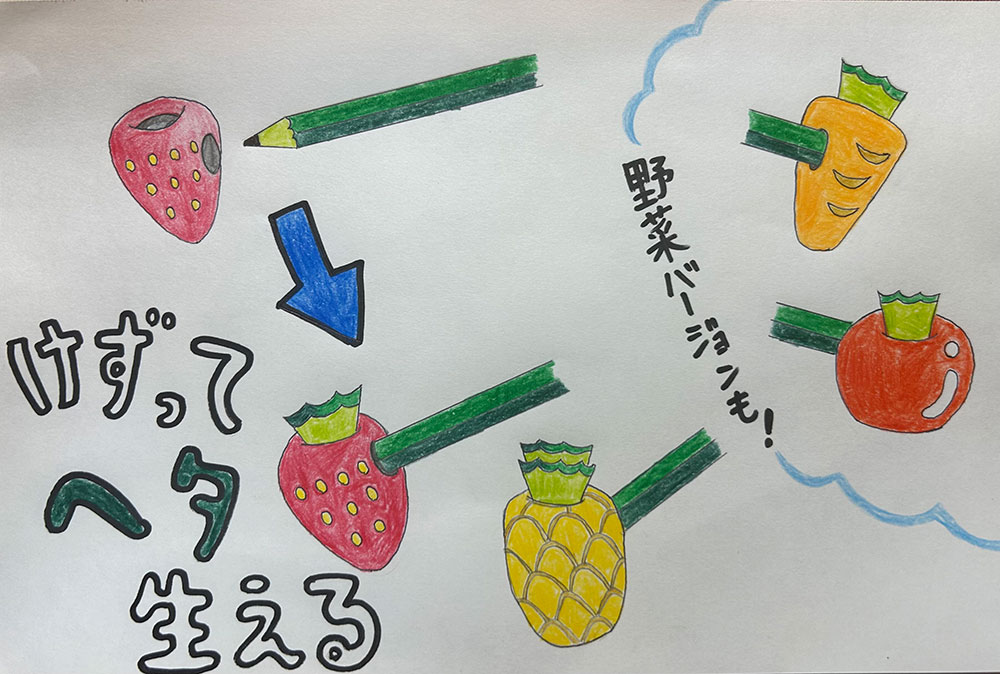 けずって
ヘタ
生える
野菜バージョンも!